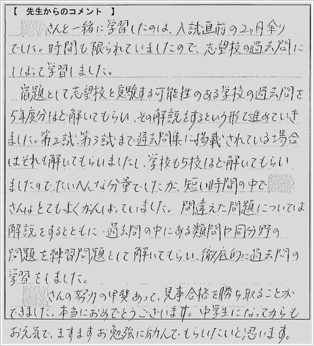 【 先生からのコメント 】
さんと一緒に学習したのは、入試直前の2ヶ月余り
でした。時間も限られていましたので、志望校の過去問に
しぼって学習しました。
宿題として志望校と受験する可能性のある学校の過去問を
5年度分ほど解いてもらい、その解説をするという形で進めていき
ました。第2試、第3試まで過去問集に掲載されている場合
はそれも解いてもらいましたし、学校も5校ほど解いてもらい
ましたので、たいへんな分量でしたが、短い時間の中で
さんはとてもよくがんばっていました。間違えた問題については
解説をするとともに、過去問の中にある類問や同分野の
問題を練習問題として解いてもらい、徹底的に過去問の
学習をしました。
さんの努力の甲斐あって、見事合格を勝ち取ることが
できました。本当におめでとうございます。中学生になってからも
お元気で、ますますお勉強に励んでもらいたいと思います。